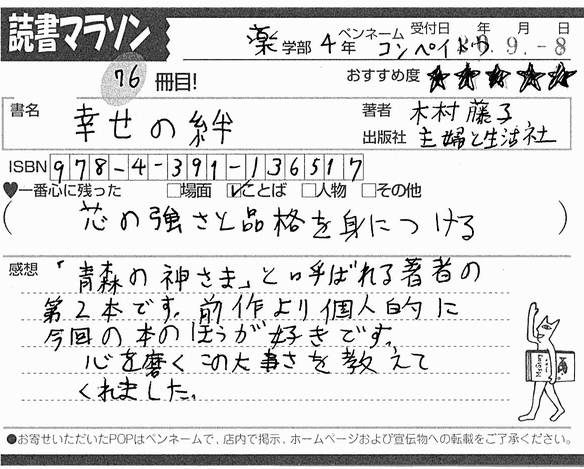 読書マラソン
薬学部 4年 ペンネーム コンペイトウ 受付日 年 月 日
9.-8
76 冊目!
おすすめ度 ★★★★★
書名 幸せの絆
著者 木村藤子
出版社 主婦と生活社
ISBN 978-4-391-136517
♥一番心に残った □場面 ☑ことば □人物 □その他
(芯の強さと品格を身につける)
感想 「青森の神さま」と呼ばれる著者の
第2本です。前作より個人的に
今回の本のほうが好きです。
心を磨くこの大事さを教えて
くれました。
●お寄せいただいたPOPはペンネームで、店内で掲示、ホームページおよび宣伝物への転載をご了承ください。